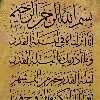 بسم الله الرحمن الرحيم
إنا أنزلناه في ليلة القدر
وما أدراك ما ليلة القدر
ليلة القدر خير من ألف شهر